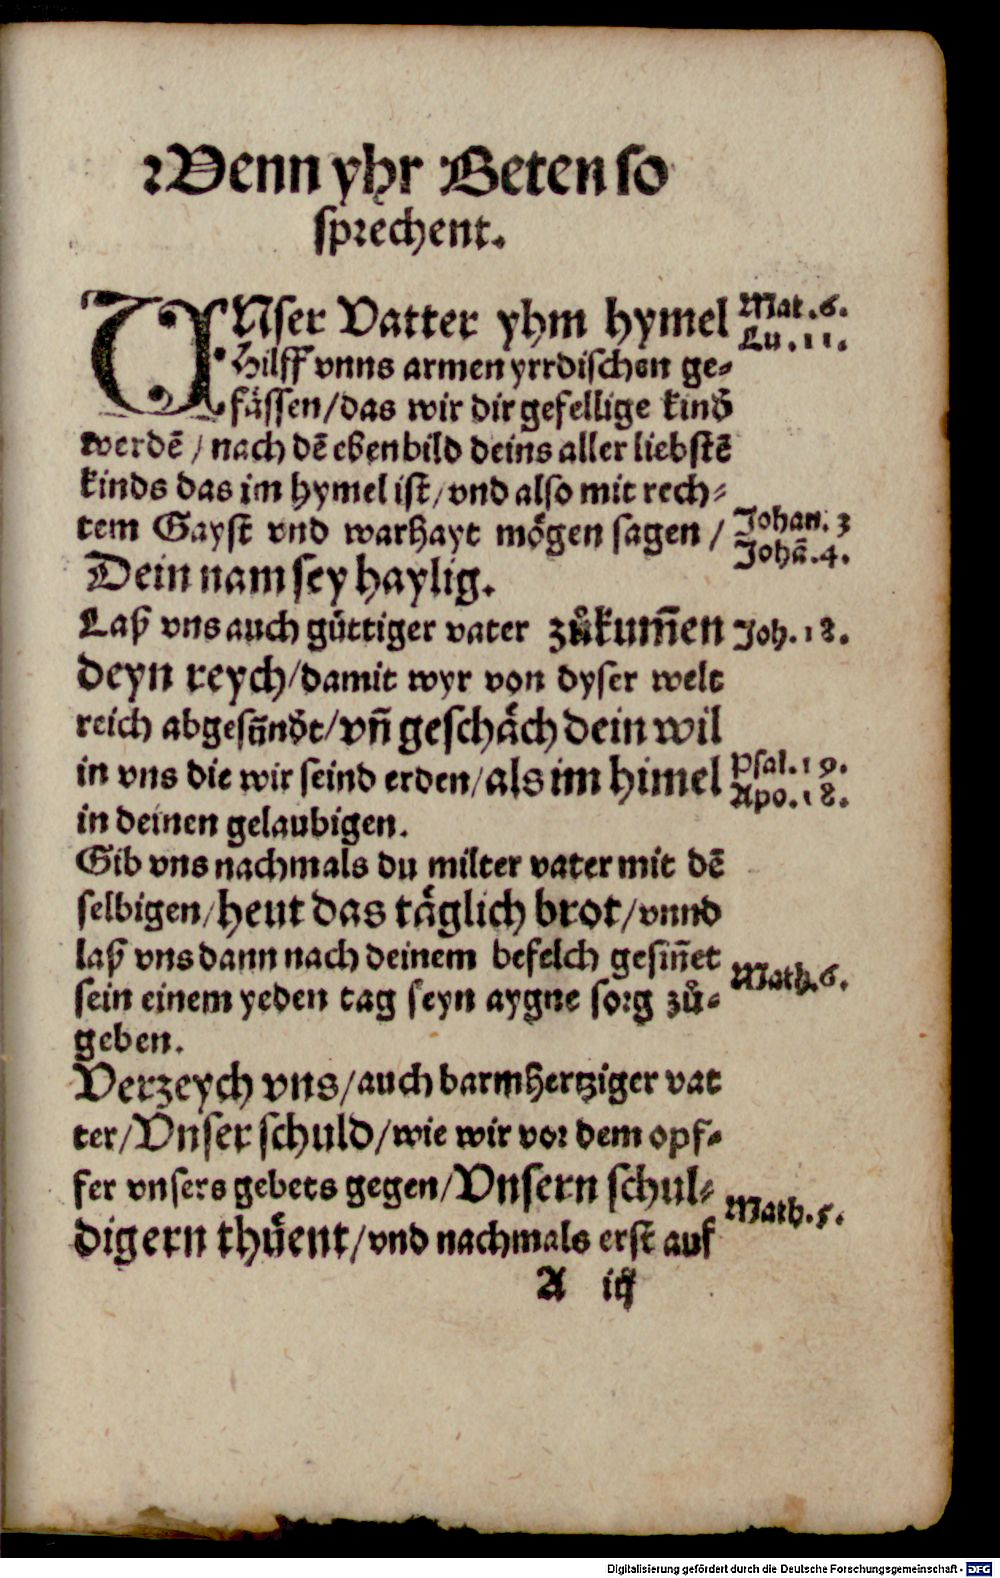 Wenn yhr Beten so
sprechent.
UNser Vatter yhm hymel
Mat.6.
Lu.11.
Hilff vnns armen yrrdischen ge-
fässen/das wir dir gefellige kind
werdē/nach dē ebenbild deins aller liebstē
kinds das im hymel ist/vnd also mit rech-
tem Gayst vnd warhayt mögen sagen/
Johan.3
Johā.4.
Dein nam sey haylig.
Laß vns auch güttiger vater zůkum̄en
Joh.18.
deyn reych/damit wyr von dyser welt
reich abgesün̄dt/vn̄ geschäch dein wil
in vns die wir seind erden/als im himel
Psal.19.
Apo.18.
in deinen gelaubigen.
Gib vns nachmals du milter vater mit dē
selbigen/heut das täglich brot/vnnd
laß vns dann nach deinem befelch gesin̄et
Math.6.
sein einem yeden tag seyn aygne sorg zů-
geben.
Verzeych vns/auch barmhertziger vat
ter/Vnser schuld/wie wir vor dem opf-
fer vnsers gebets gegen/Vnsern schul-
Math.5.
digern thůent/vnd nachmals erst auf
A iij
Digitalisierung gefördert durch die Deutsche Forschungsgemeinschaft - DFG